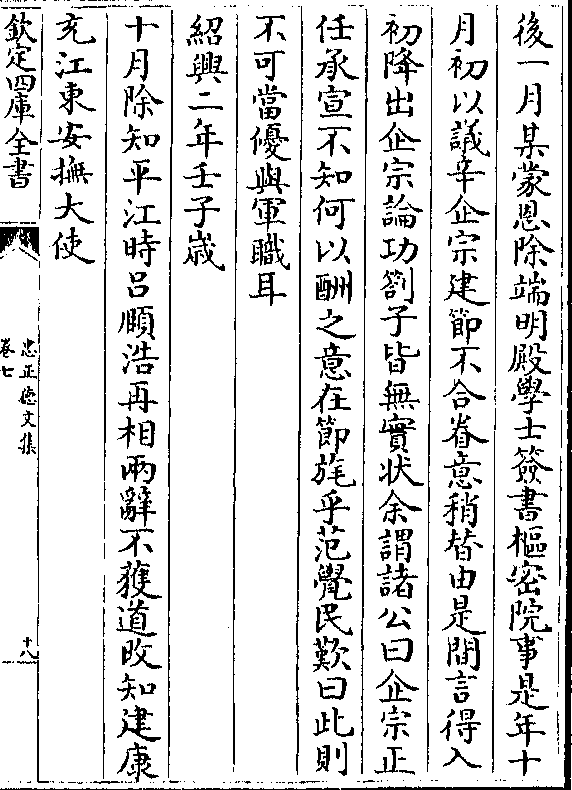 後一月某蒙恩除端明殿學士簽書樞密院事是年十
月初以議辛企宗建節不合眷意稍替由是間言得入
初降出企宗論功劄子皆無實狀余謂諸公曰企宗正
任承宣不知何以酬之意在節旄乎范覺民歎曰此則
不可當優與軍職耳
紹興二年壬子歳
十月除知平江時吕頤浩再相兩辭不獲道改知建康
充江東安撫大使
欽定四庫全書
忠正德文集
卷七
十八